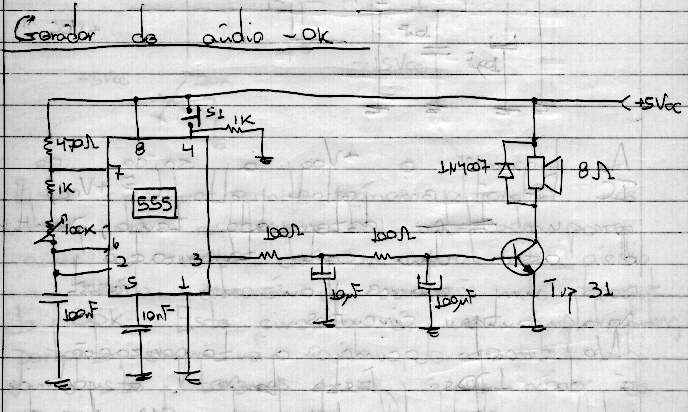 Gerador de áudio - OK
+5Vcc
S1
1K
470Ω
8
4
7
1K
1N4007
8Ω
555
100K
6
2
3
100Ω
100Ω
5
1
10µF
100µF
Tip 31
100nF
10nF